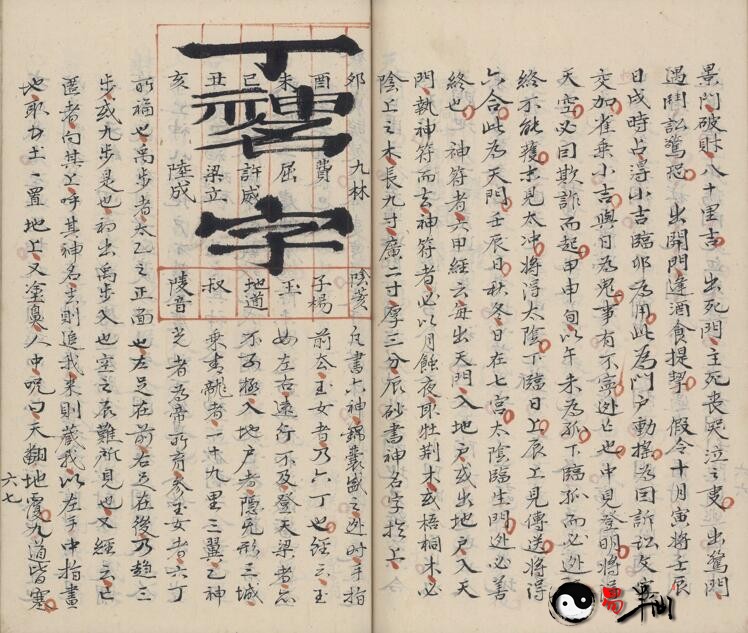 景門破財八十里吉 出死門主死喪哭泣之吏 出驚門
遇鬪訟驚恐 出開門逢酒食提挈 假令十月寅將壬辰
日戌時占得小吉臨卯為用此為門戶動搖為回訴訟文字
交加雀乗小吉與日為鬼事有不寧逃亡也中見登明將得
天空必因欺詐而起甲申旬以午未為孤下臨孤而必逃
終不能獲末見太冲將得太陰下臨日上辰上見傳送將得
六合此為天門壬辰日秋冬日在七宮太陰臨生門逃必善
終也 神符者六甲經云每出天門入地戶或出地戶入天
門執神符而去神符者必以月蝕夜取牡荊木或梧桐木必
陰上之木長九寸廣二寸厚三分辰砂書神名字於上
丁神名字
卯 九林 陰 反書六神錦囊盛之逃時手指
酉 費 子楊 前去玉女者乃六丁也經云玉
未 屈 玉 女左右遠行不及登天梁者
巳 許咸 地道 不可極入地戶者隱死形三城
丑 梁立 叔 乗青龍者一十九里三翼乙神
亥 陸成 陵音 光者為帝所育參玉女者六丁
所福也禹步者太乙之正面也左足在前右足在後乃趨三
步或九步是也初出禹步入也室之辰難所見也又經云亡
匿者向其上呼其神名主則追我來則藏我以左手中指畫
地取力土一置地上又塗鼻人中呪曰天翻地覆九道皆塞
六七